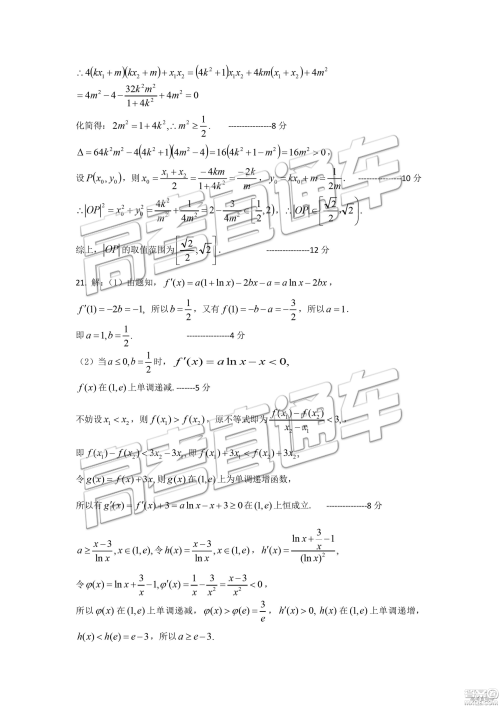 ∴4(kx₁+m)(kx₂+m)+x₁x₂=(4k²+1)x₁x₂+4km(x₁+x₂)+4m²
=4m²-4-32k²m²/(1+4k²)+4m²=0
化简得：2m²=1+4k²,∴m²≥1/2. ----------------8分
Δ=64k²m²-4(4k²+1)(4m²-4)=16(4k²+1-m²)=16m²>0，
设P(x₀,y₀)，则x₀=(x₁+x₂)/2=-4km/(1+4k²)=-2k/m，y₀=kx₀+m=1/2m. ----------------10分
∴|OP|²=x₀²+y₀²=4k²/m²+1/4m²=2-3/4m²∈[1/2,2)。∴|OP|∈[√2/2,√2).
综上，|OP|的取值范围为[√2/2,√2]. ----------------12分
21. 解：（1）由题知，f′(x)=a(1+ln x)-2bx-a=a ln x-2bx，
f′(1)=-2b=-1, 所以b=1/2，又有f(1)=-b-a=-3/2，所以a=1.
即a=1,b=1/2. ----------------4分
（2）当a≤0,b=1/2时，f′(x)=a ln x-x<0,
f(x)在(1,e)上单调递减. -------5分
不妨设x₁<x₂，则f(x₁)>f(x₂)，原不等式即为(f(x₁)-f(x₂))/(x₂-x₁)<3,，
即f(x₁)-f(x₂)<3x₂-3x₁,即f(x₁)+3x₁<f(x₂)+3x₂,
令g(x)=f(x)+3x,则g(x)在(1,e)上为单调递增函数，
所以有g′(x)=f′(x)+3=a ln x-x+3≥0在(1,e)上恒成立. ---------------8分
a≥(x-3)/ln x,x∈(1,e),令h(x)=(x-3)/ln x,x∈(1,e)，h′(x)=(ln x+3/x-1)/(ln x)²,
令φ(x)=ln x+3/x-1,φ′(x)=1/x-3/x²=(x-3)/x²<0，
所以φ(x)在(1,e)上单调递减，φ(x)>φ(e)=3/e，h′(x)>0, h(x)在(1,e)上单调递增，
h(x)<h(e)=e-3，所以a≥e-3.
@高考直通车